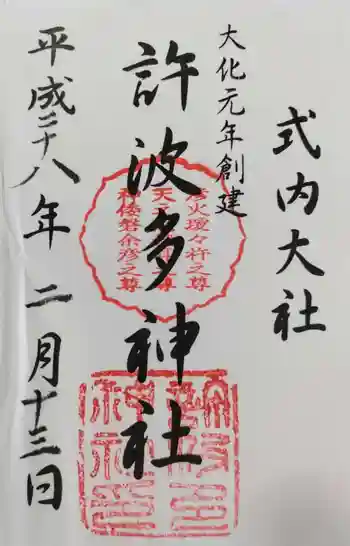 式内大社
大化元年創建
許波多神社
瓊々杵之尊
天
之尊
倭磐余彦之尊
平成二十八年 二月十三日